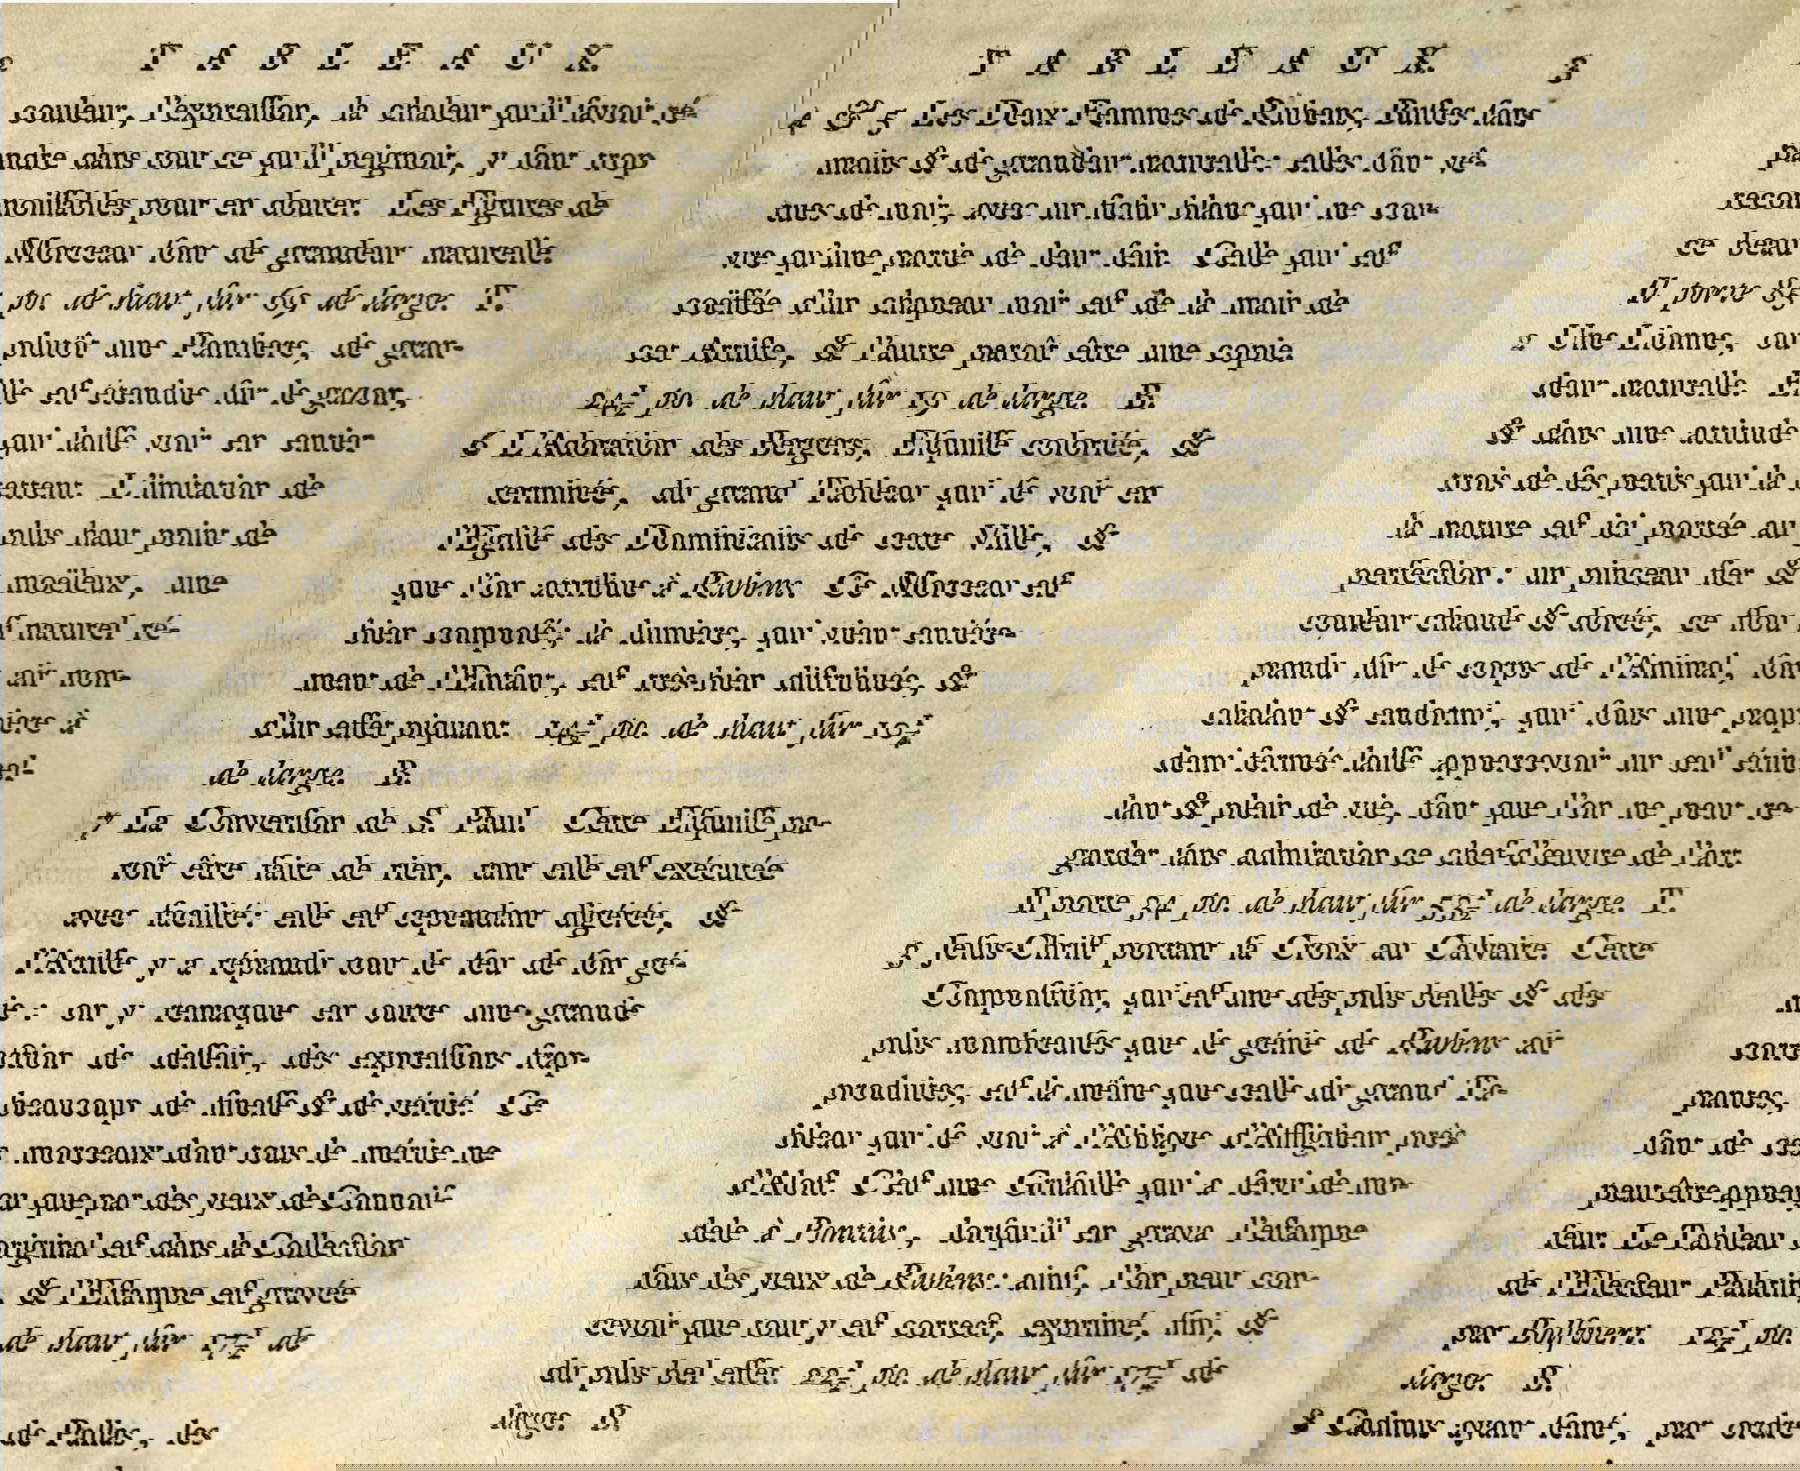 T A B L E A U X.
couleur, l'expreſſion, la chaleur qu'il ſavoit ré-
ndre dans tout ce qu'il peignoit, y ſont trop
nnoiſſables pour en douter. Les Figures de
Morceau ſont de grandeur naturelle.
po. de haut ſur 69 de large. T.
plutôt une Panthere, de gran-
lle eſt étendue ſur le gazon,
qui laiſſe voir en entier
ettent. L'imitation de
plus haut point de
moëleux, une
f naturel ré-
air non-
iere à
T A B L E A U X. 3
4 & 5 Les Deux Femmes de Rubens, Buſtes ſans
mains & de grandeur naturelle: elles ſont vê-
tues de noir, avec un ſatin blanc qui ne cou-
vre qu'une partie de leur ſein. Celle qui eſt
coëffée d'un chapeau noir eſt de la main de
cet Artiſte, & l'autre paroît être une copie.
24½ po. de haut ſur 19 de large. B.
6 L'Adoration des Bergers, Eſquiſſe coloriée, &
terminée, du grand Tableau qui ſe voit en
l'Egliſe des Dominicains de cette Ville, &
que l'on attribue à Rubens. Ce Morceau eſt
bien compoſé; la lumiere, qui vient entiére-
ment de l'Enfant, eſt très-bien diſtribuée, &
d'un effet piquant. 14½ po. de haut ſur 19½
de large. B.
7 La Converſion de S. Paul. Cette Eſquiſſe pa-
roît être faite de rien, tant elle eſt exécutée
avec facilité: elle eſt cependant digérée, &
l'Artiſte y a répandu tout le feu de ſon gé-
ie: on y remarque en outre une grande
ction de deſſein, des expreſſions ſupr-
beaucoup de fineſſe & de vérité. Ce
morceaux dont tout le mérite ne
ar que par des yeux de Connoiſ-
original eſt dans la Collection
& l'Eſtampe eſt gravée
de haut ſur 17½ de
de Pallas, des
recon
ce beau
Il porte
Une Lionne, ou
deur naturelle. E
& dans une attitude
trois de ſes petits qui la
la nature eſt ici portée au
perfection: un pinceau fier &
couleur chaude & dorée, ce flou
pandu ſur le corps de l'Animal, ſon
chalant & endormi, qui ſous une paupi
demi fermée laiſſe appercevoir un œil étin
lant & plein de vie, font que l'on ne peut re-
garder ſans admiration ce chef-d'œuvre de l'art.
Il porte 54 po. de haut ſur 55½ de large. T.
3 Jeſus-Chriſt portant ſa Croix au Calvaire. Cette
Compoſition, qui eſt une des plus belles & des
plus nombreuſes que le génie de Rubens ait
produites, eſt la même que celle du grand Ta-
bleau qui ſe voit à l'Abbaye d'Afflighem près
d'Aloſt. C'eſt une Griſaille qui a ſervi de mo-
dele à Pontius, lorſqu'il en grava l'eſtampe
ſous les yeux de Rubens: ainſi, l'on peut con-
cevoir que tout y eſt correct, exprimé, fini, &
du plus bel effet. 22½ po. de haut ſur 17½ de
large. B.
nantes,
ſont de
peut être appuy
ſeur. Le Tableau
de l'Electeur Palatin
par Bolſwert. 12½ po.
large. B.
8 Cadmus ayant ſemé, par ordre